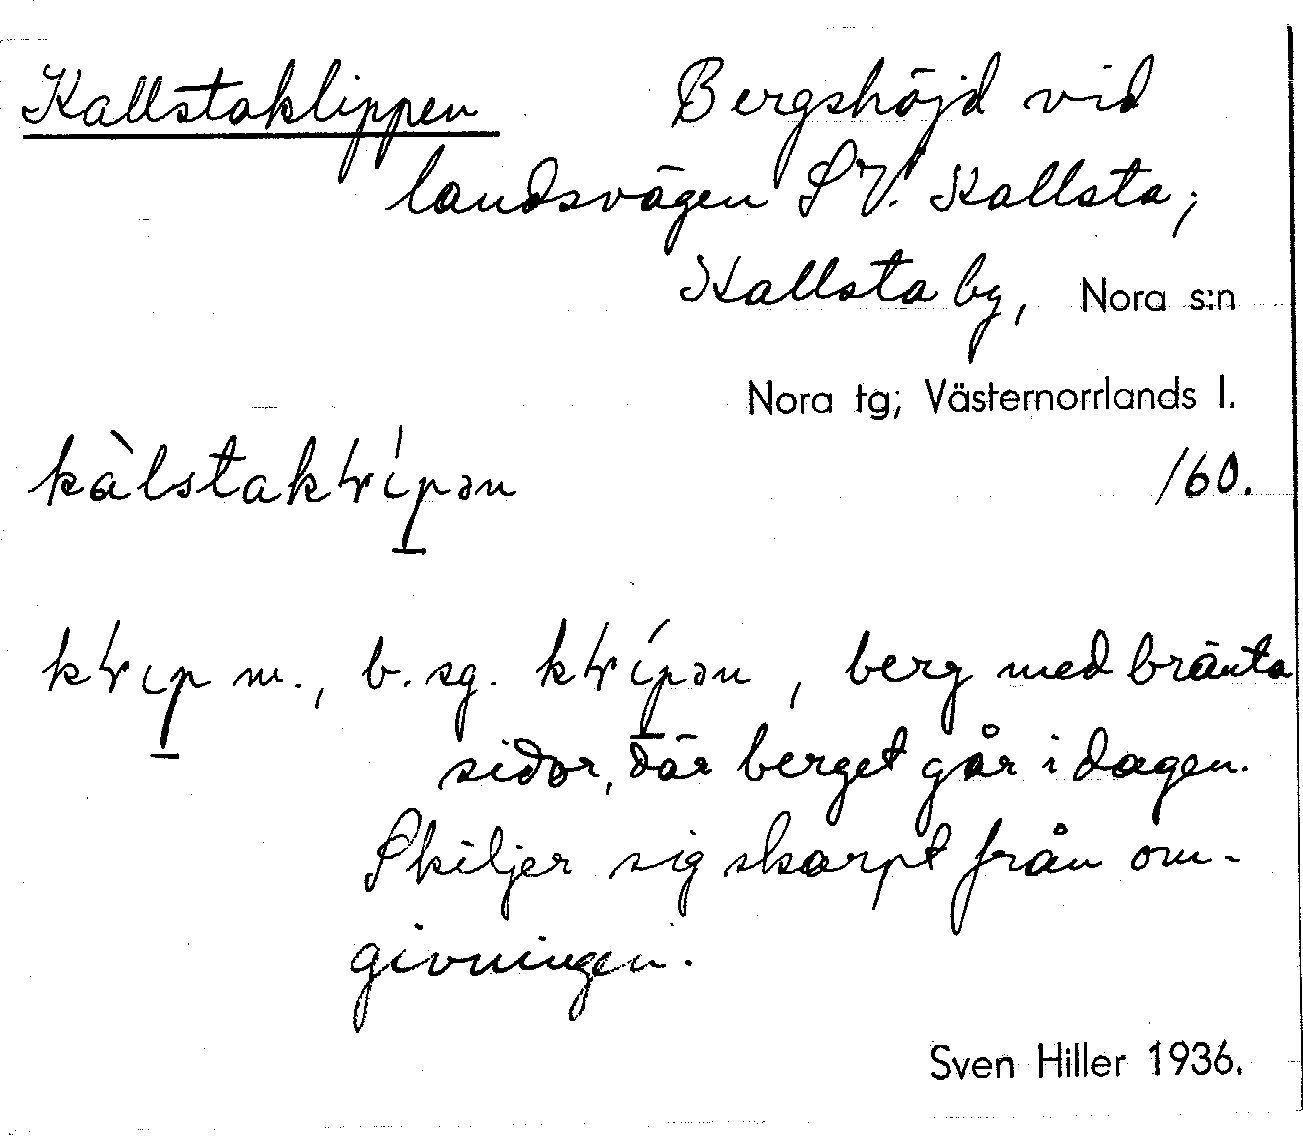 Kallstaklippen Bergshöjd vid
landsvägen SV. Kallsta;
Kallsta by, Nora s:n
Nora tg; Västernorrlands l.
kàlstakłípən /60.
kłıp m., b. sg. kłípən, berg med bränta
sidor, där berget går i dagen.
Skiljer sig skarpt från om-
givningen.
Sven Hiller 1936.